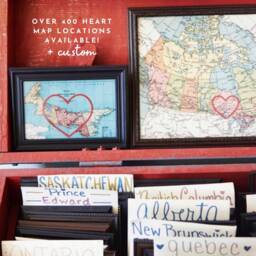 OVER 400 HEART
MAP LOCATIONS
AVAILABLE!
+ custom
SASKATCHEWAN
Prince
Edward
British Columbia
Alberta
New Brunswick
ONTARIO
quebec